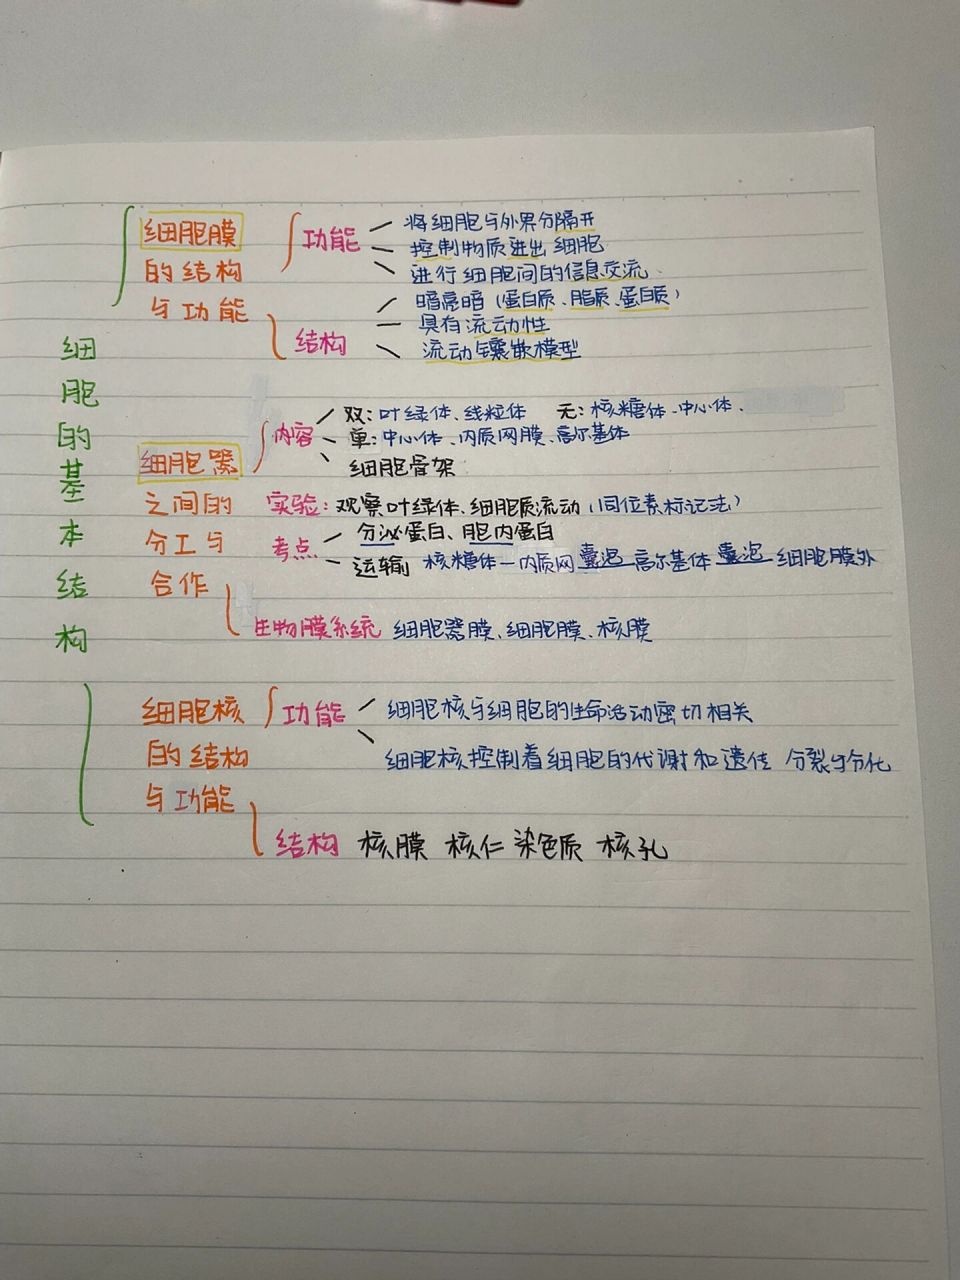 细胞的基本结构
细胞膜的结构与功能
功能
将细胞与外界分隔开
控制物质进出细胞
进行细胞间的信息交流
结构
暗亮暗（蛋白质、脂质、蛋白质）
具有流动性
流动镶嵌模型
细胞器之间的分工与合作
内容
双：叶绿体、线粒体 无：核糖体、中心体、
单：中心体、内质网膜、高尔基体
细胞骨架
实验：观察叶绿体、细胞质流动（同位素标记法）
考点
分泌蛋白、胞内蛋白
运输 核糖体—内质网 囊泡 高尔基体 囊泡 细胞膜外
生物膜系统 细胞器膜、细胞膜、核膜
细胞核的结构与功能
功能
细胞核与细胞的生命活动密切相关
细胞核控制着细胞的代谢和遗传 分裂与分化
结构 核膜 核仁 染色质 核孔